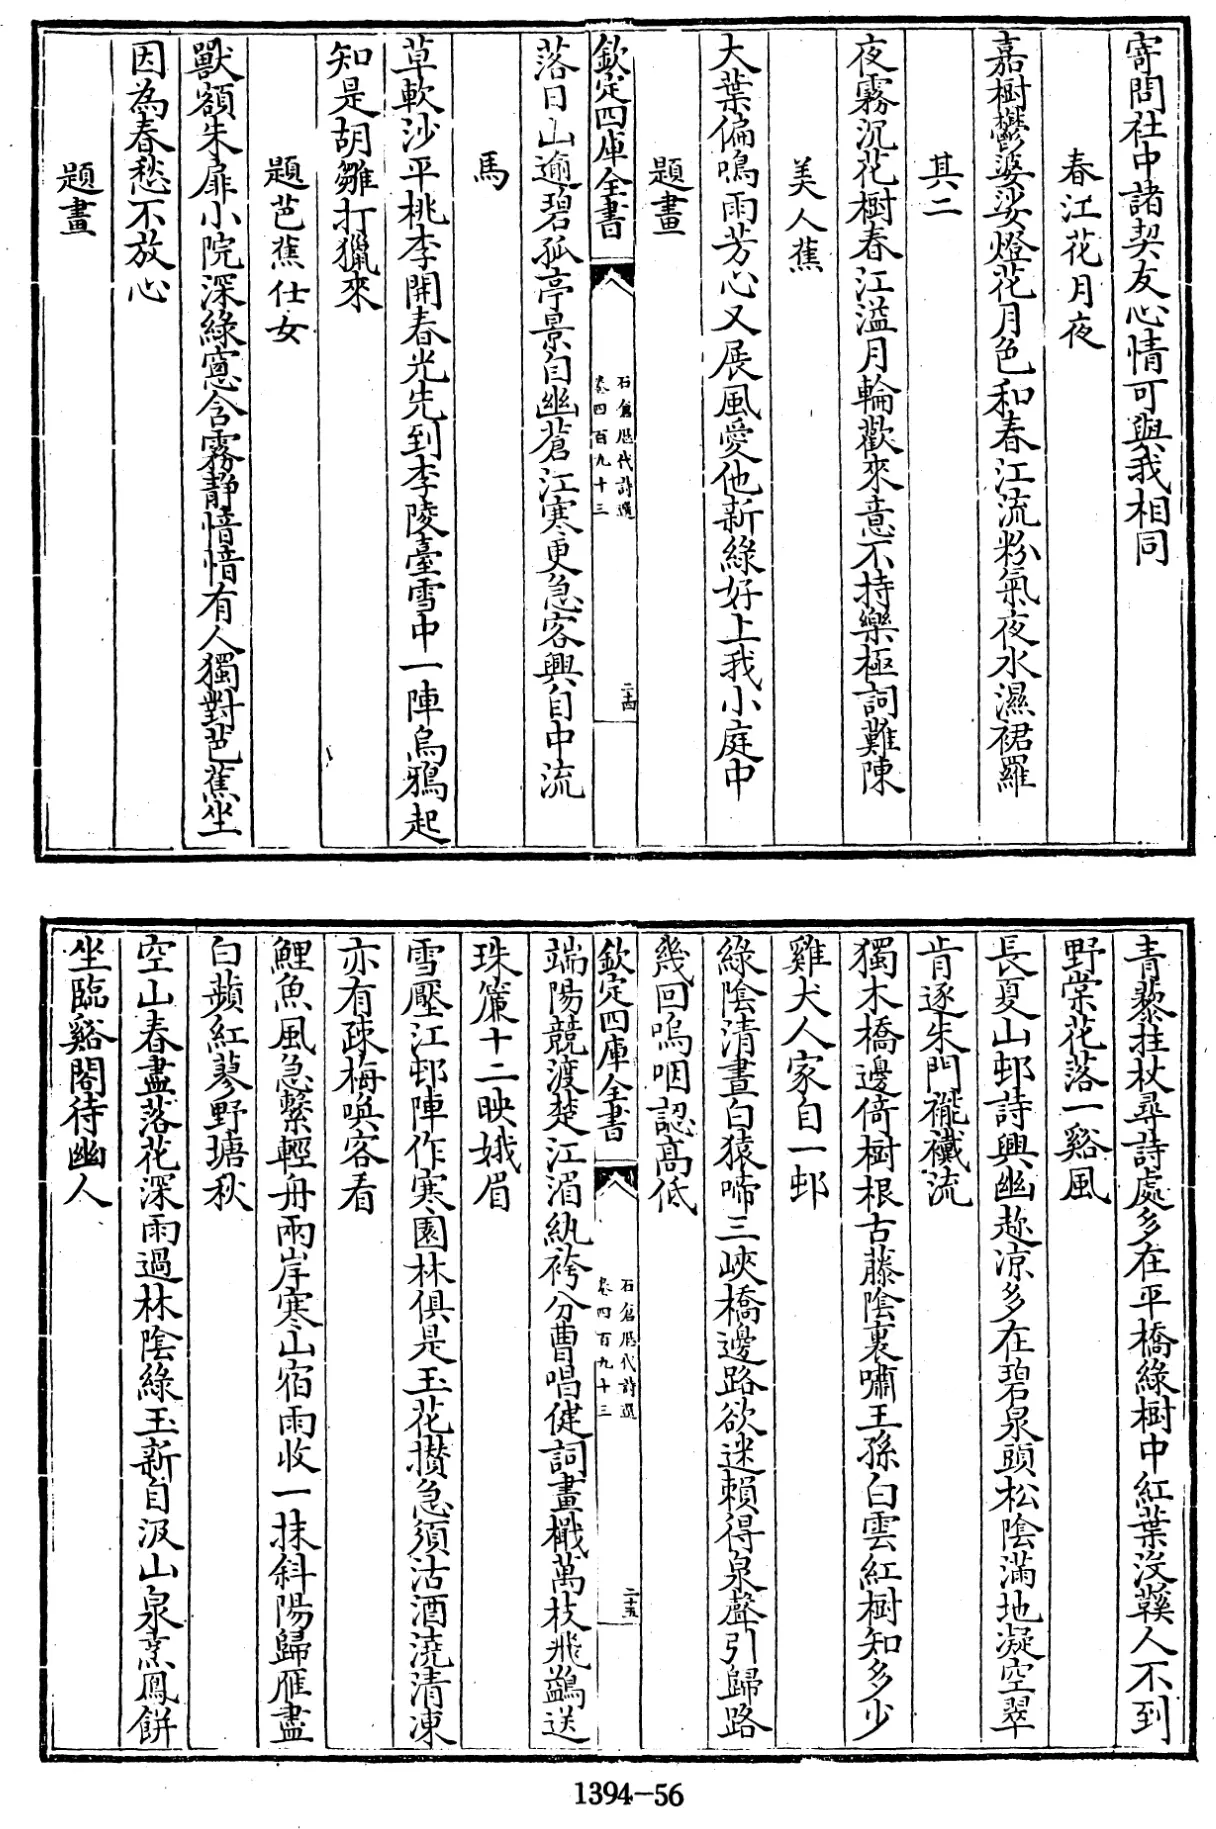 寄問社中諸契友心情可與我相同
春江花月夜
嘉樹鬱婆娑燈花月色和春江流粉氣夜水濕裙羅
其二
夜霧沉花樹春江溢月輪歡來意不持樂極詞難陳
美人蕉
大葉偏鳴雨芳心又展風愛他新綠好上我小庭中
題畫
欽定四庫全書
石倉歷代詩選
卷四百九十三
二十四
落日山逾碧孤亭景自幽蒼江寒更急客興自中流
馬
草軟沙平桃李開春光先到李陵臺雪中一陣烏鴉起
知是胡雛打獵來
題芭蕉仕女
獸額朱扉小院深綠窻含霧靜愔愔有人獨對芭蕉坐
因為春愁不放心
題畫
青藜拄杖尋詩處多在平橋綠樹中紅葉沒鞵人不到
野棠花落一谿風
長夏山邨詩興幽趂凉多在碧泉頭松陰滿地凝空翠
肯逐朱門褦襶流
獨木橋邊倚樹根古藤陰裏嘯王孫白雲紅樹知多少
雞犬人家自一邨
綠陰清晝白猿啼三峽橋邊路欲迷賴得泉聲引歸路
幾回嗚咽認高低
欽定四庫全書
石倉歷代詩選
卷四百九十三
二十五
端陽競渡楚江湄紈袴分曹唱健詞畫檝萬枝飛鷁送
珠簾十二映娥眉
雪壓江邨陣作寒園林俱是玉花攅急須沽酒澆清凍
亦有疎梅喚客看
鯉魚風急繫輕舟兩岸寒山宿雨收一抹斜陽歸雁盡
白蘋紅蓼野塘秋
空山春盡落花深雨過林陰綠玉新自汲山泉烹鳳餅
坐臨谿閣待幽人
1394-56